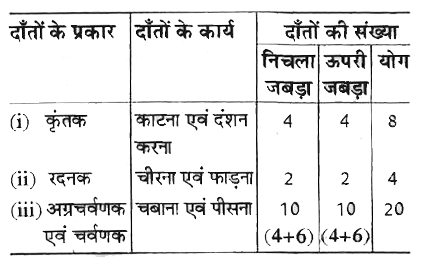 दाँतों के प्रकार दाँतों के कार्य दाँतों की संख्या
निचला ऊपरी योग
जबड़ा जबड़ा
(i) कृंतक काटना एवं दंशन 4 4 8
करना
(ii) रदनक चीरना एवं फाड़ना 2 2 4
(iii) अग्रचर्वणक चबाना एवं पीसना 10 10 20
एवं चर्वणक (4+6) (4+6)